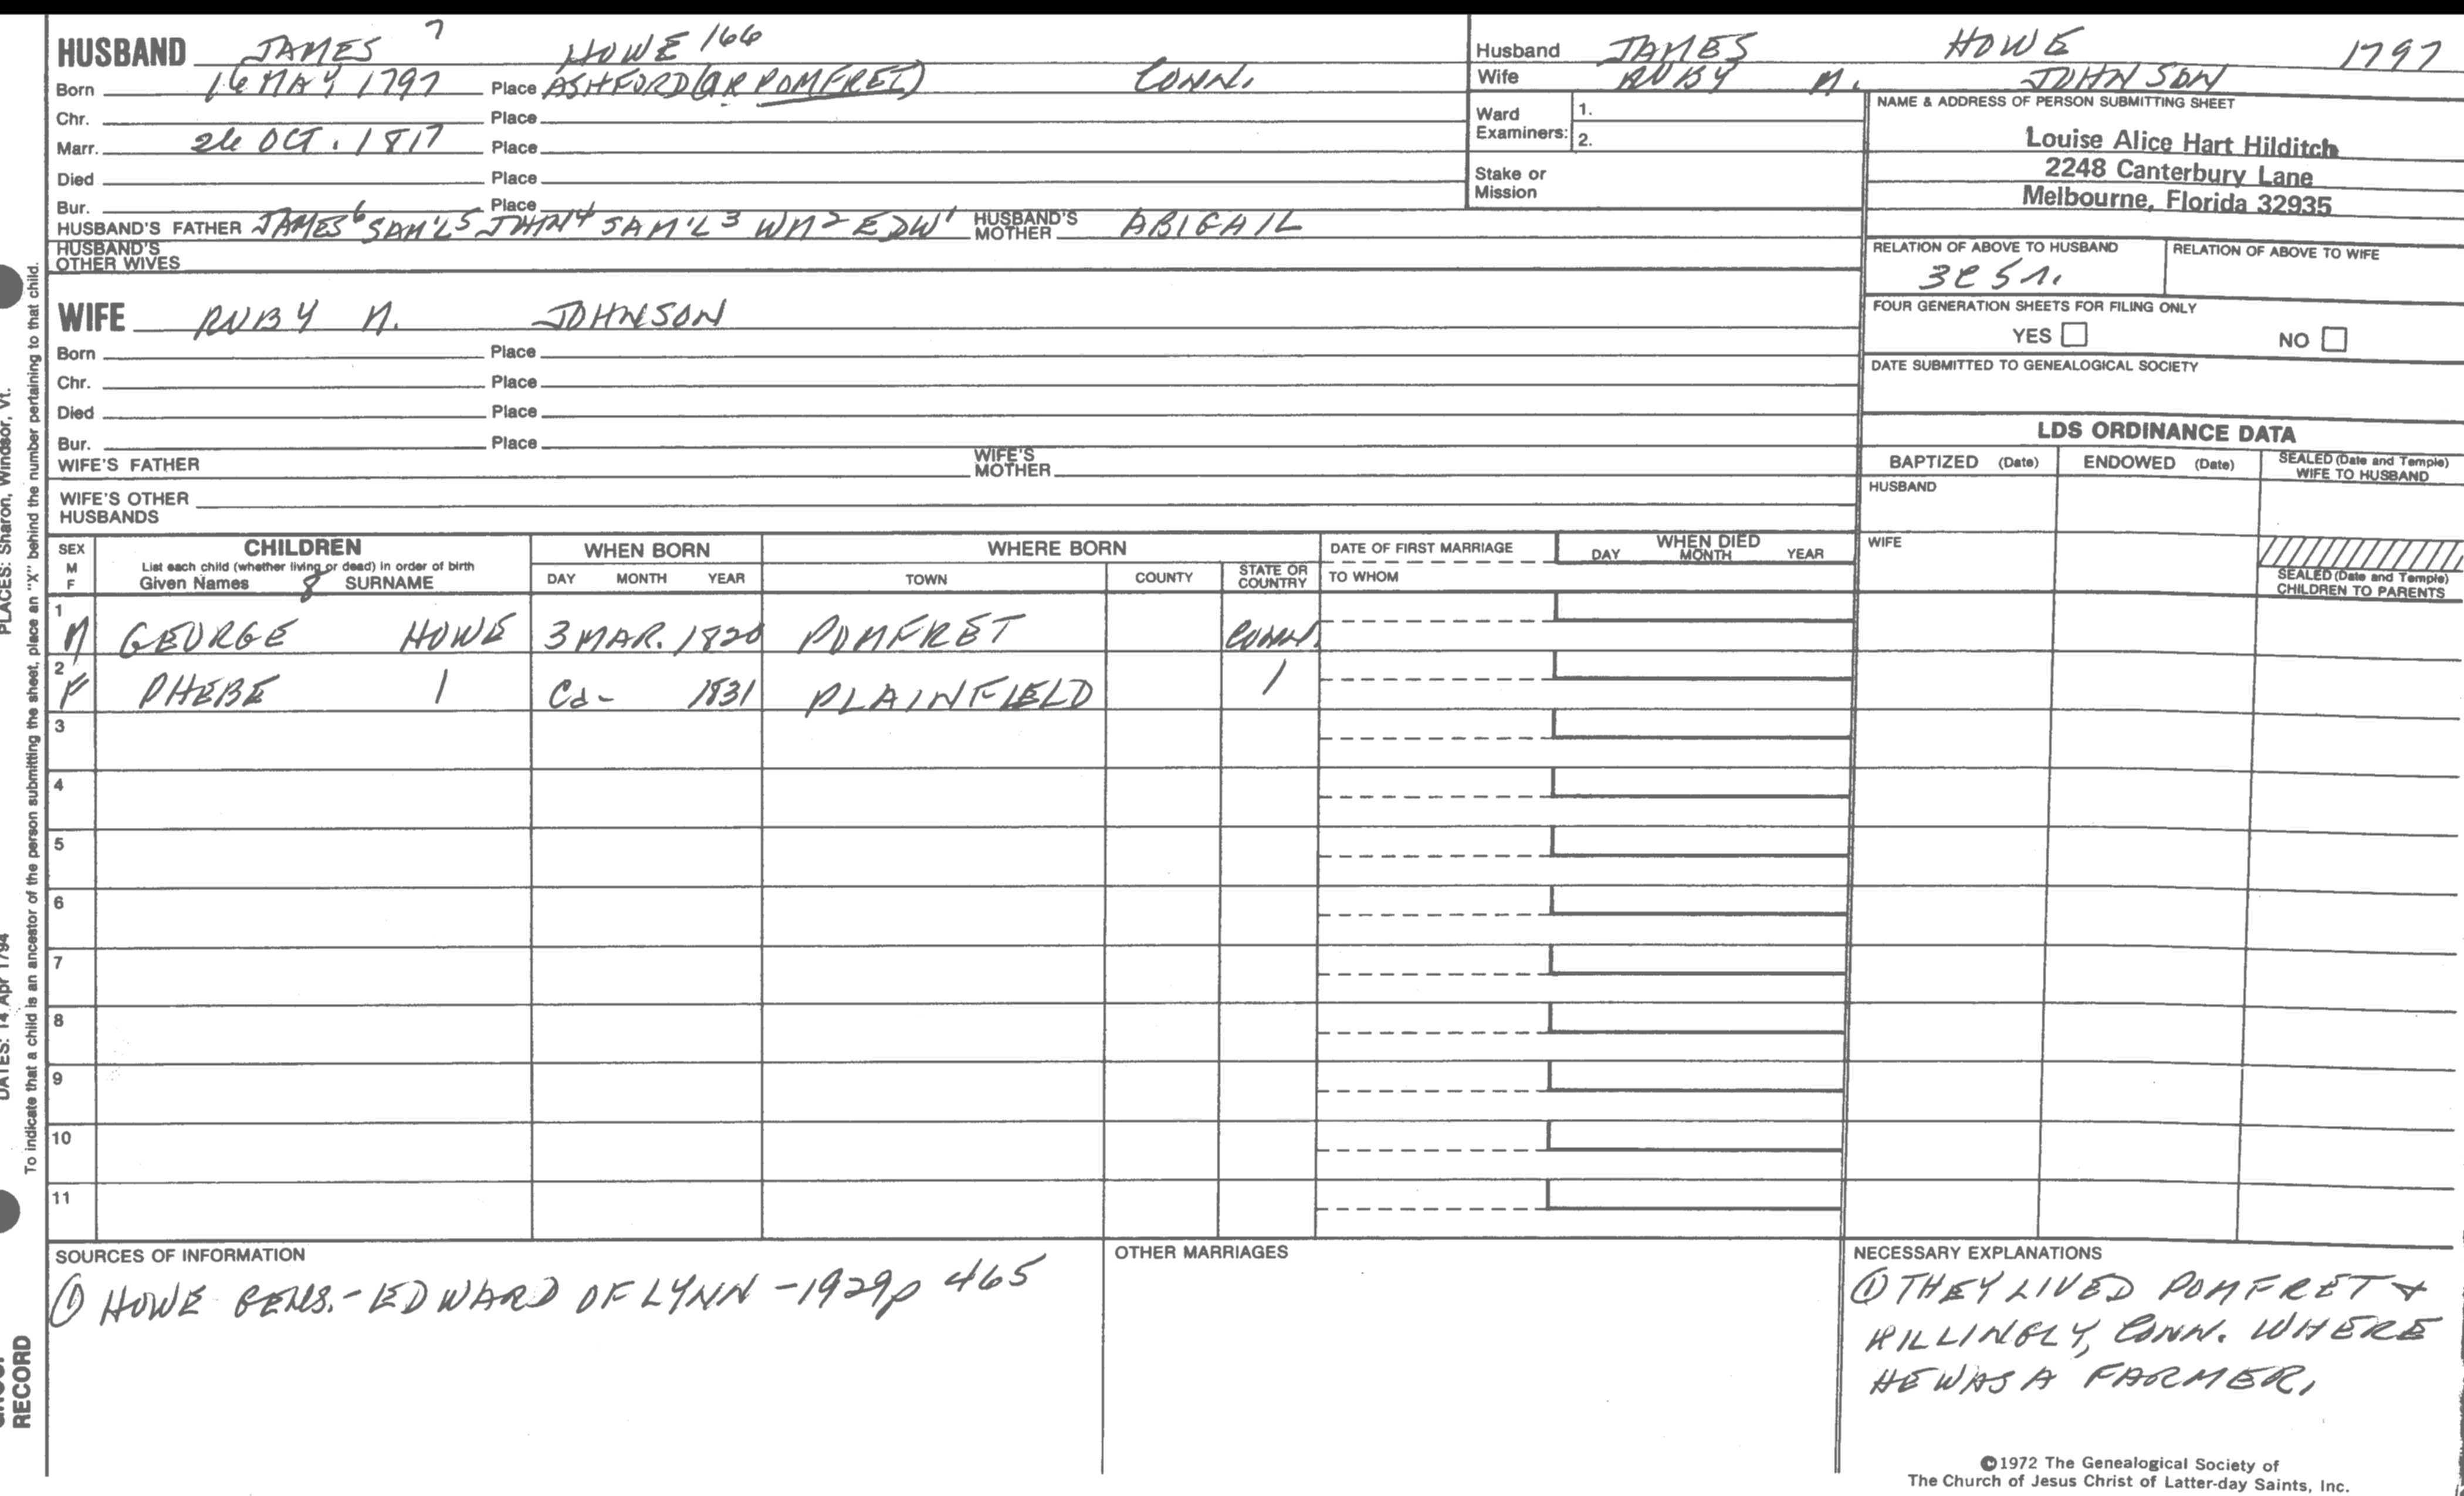 HUSBAND JAMES 7 HOWE 166
Born 16 MAY 1797 Place ASHFORD (OR POMFRET) CONN.
Chr. Place
Marr. 26 OCT. 1817 Place
Died Place
Bur. Place
HUSBAND'S FATHER JAMES 6 SAM'L 5 JOHN 4 SAM'L 3 WM 2 EDW 1 HUSBAND'S MOTHER ABIGAIL
HUSBAND'S OTHER WIVES
WIFE RUBY M. JOHNSON
Born Place
Chr. Place
Died Place
Bur. Place
WIFE'S FATHER WIFE'S MOTHER
WIFE'S OTHER HUSBANDS
Husband JAMES HOWE 1797
Wife RUBY M. JOHNSON
Ward Examiners: 1.
2.
Stake or Mission
NAME & ADDRESS OF PERSON SUBMITTING SHEET
Louise Alice Hart Hilditch
2248 Canterbury Lane
Melbourne, Florida 32935
RELATION OF ABOVE TO HUSBAND RELATION OF ABOVE TO WIFE
3C 5R.
FOUR GENERATION SHEETS FOR FILING ONLY
YES NO
DATE SUBMITTED TO GENEALOGICAL SOCIETY
LDS ORDINANCE DATA
BAPTIZED (Date) ENDOWED (Date) SEALED (Date and Temple) WIFE TO HUSBAND
HUSBAND
WIFE
SEALED (Date and Temple) CHILDREN TO PARENTS
SEX M F
CHILDREN
List each child (whether living or dead) in order of birth
Given Names 8 SURNAME
WHEN BORN
DAY MONTH YEAR
WHERE BORN
TOWN COUNTY STATE OR COUNTRY
DATE OF FIRST MARRIAGE
TO WHOM
WHEN DIED
DAY MONTH YEAR
1 M GEORGE HOWE 3 MAR. 1820 POMFRET CONN.
2 F PHEBE 1 Ca- 1831 PLAINFIELD /
3
4
5
6
7
8
9
10
11
SOURCES OF INFORMATION
① HOWE GENS. - EDWARD OF LYNN - 1929 p 465
OTHER MARRIAGES
NECESSARY EXPLANATIONS
① THEY LIVED POMFRET &
KILLINGLY, CONN. WHERE
HE WAS A FARMER.
©1972 The Genealogical Society of
The Church of Jesus Christ of Latter-day Saints, Inc.
To indicate that a child is an ancestor of the person submitting the sheet, place an "X" behind the number pertaining to that child.
PLACES: Sharon, Windsor, Vt.
DATES: 14 Apr 1794
RECORD